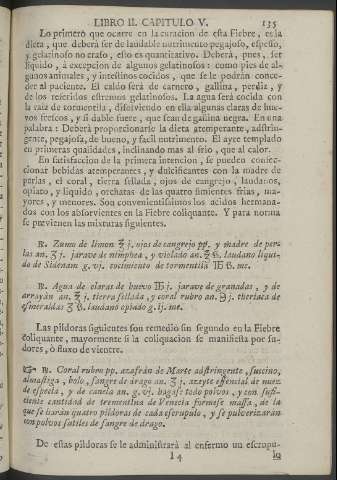 LIBRO II. CAPITULO V. 135
Lo primero que ocurre en la curacion de esta Fiebre, es la
dieta, que deberá ser de laudable nutrimento pegajoso, espeso,
y gelatinoso no craso, esto es quantitativo. Deberá, pues, ser
liquido, à excepcion de algunos gelatinosos: como pies de al-
gunos animales, y intestinos cocidos, que se le podrán conce-
der al paciente. El caldo será de carnero, gallina, perdiz, y
de los referidos estremos gelatinosos. La agua será cocida con
la raiz de tormentila, disolviendo en ella algunas claras de hue-
vos frescos, y si dable fuere, que sean de gallina negra. En una
palabra: Deberá proporcionarse la dieta atemperante, adstrin-
gente, pegajosa, de bueno, y facil nutrimento. El ayre templado
en primeras qualidades, inclinando mas al frio, que al calor.
En satisfaccion de la primera intencion, se pueden confec-
cionar bebidas atemperantes, y dulcificantes con la madre de
perlas, el coral, tierra sellada, ojos de cangrejo, laudanos,
opiato, y liquido, orchatas de las quatro simientes frias, ma-
yores, y menores. Son convenientisimos los acidos hermana-
dos con los absorvientes en la Fiebre coliquante. Y para norma
se previenen las mixturas siguientes.
℞. Zumo de limon ℥ j. ojos de cangrejo pp. y madre de per-
las an. ʒ j. jarave de nimphea, y violado an. ℥ ß. laudano liqui-
do de Sidenam g. vj. cocimiento de tormentila ℔ ß. mc.
℞. Agua de claras de huevo ℔ j. jarave de granadas, y de
arrayán an. ℥ j. tierra sellada, y coral rubro an. ℈ j. theriaca de
esmeraldas ʒ ß. laudano opiado g. ij. mc.
Las pildoras siguientes son remedio sin segundo en la Fiebre
coliquante, mayormente si la coliquacion se manifiesta por su-
dores, ò fluxo de vientre.
☞ ℞. Coral rubro pp. azafrán de Marte adstringente, succino,
almastiga, bolo, sangre de drago an. ʒ j. azeyte essencial de nuez
de especia, y de canela an. g. vj. hagase todo polvos, y con sufi-
ciente cantidad de trementina de Venecia formese massa, de la
que se harán quatro pildoras de cada escrupulo, y se pulverizarán
con polvos sutiles de sangre de drago.
De estas pildoras se le administrará al enfermo un escrupu-
I 4 lo